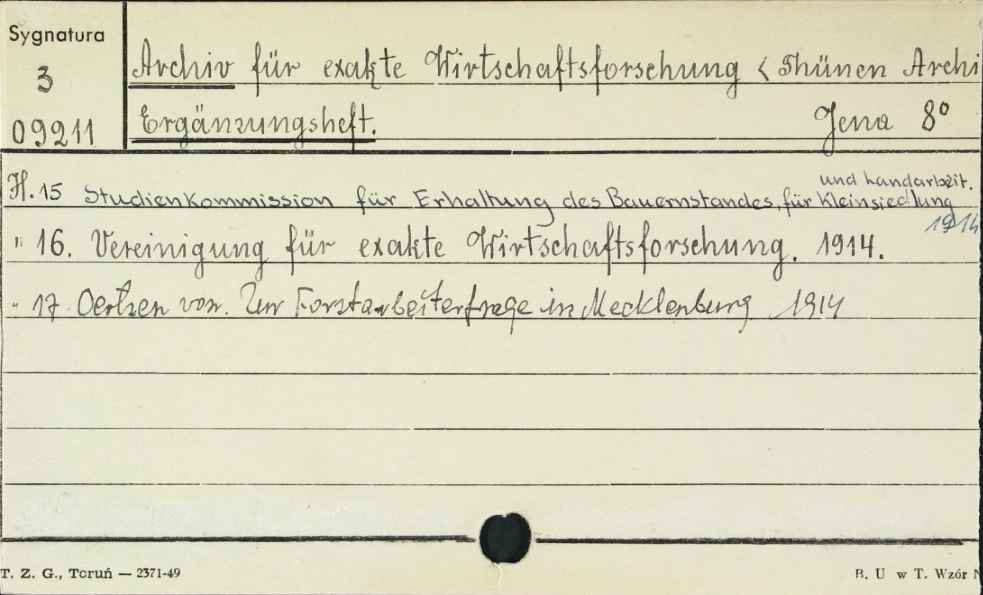 Sygnatura
3
09211
Archiv für exakte Wirtschaftsforschung < Thünen Archi
Ergänzungsheft. Jena 8°
und Landarbeit.
H. 15 Studienkommission für Erhaltung des Bauernstandes, für Kleinsiedlung
1914
" 16. Vereinigung für exakte Wirtschaftsforschung. 1914.
" 17. Oertzen von. Zur Forstarbeiterfrage in Mecklenburg 1914
T. Z. G., Toruń — 2371-49
B. U w T. Wzór N